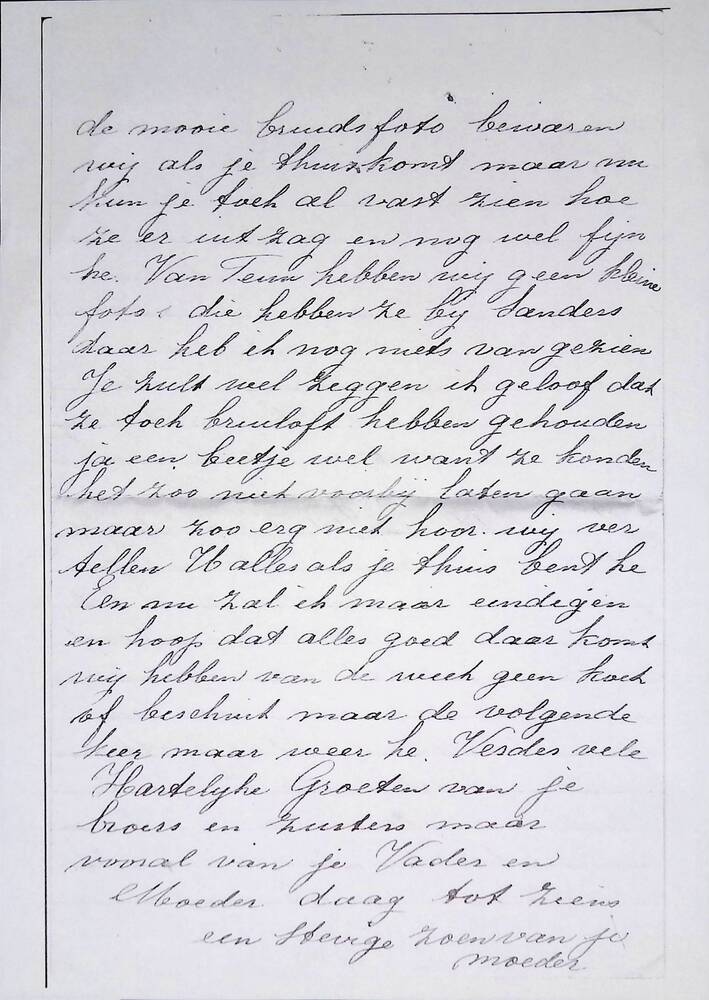 de mooie bruidsfoto bewaren
wij als je thuis komt maar nu
kun je toch al vast zien hoe
ze er uit zag en nog wel fijn
he. Van Teun hebben wij geen kleine
foto's die hebben ze bij Sanders
daar heb ik nog niets van gezien
Je zult wel zeggen ik geloof dat
ze toch bruiloft hebben gehouden
ja een beetje wel want ze konden
het zoo niet voorbij laten gaan
maar zoo erg niet hoor. wij ver
tellen U alles als je thuis bent he
En nu zal ik maar eindigen
en hoop dat alles goed daar komt
wij hebben van de week geen koek
of beschuit maar de volgende
keer maar weer he. Verdes vele
Hartelijke Groeten van je
broers en zusters maar
vooral van je Vader en
Moeder daag tot ziens
een stevige zoen van je
moeder